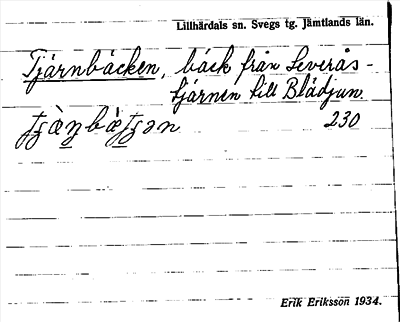 Lillhärdals sn. Svegs tg. Jämtlands län.
Tjärnbäcken, bäck från Severås-
tjärnen till Blädjan.
230
Erik Eriksson 1934.